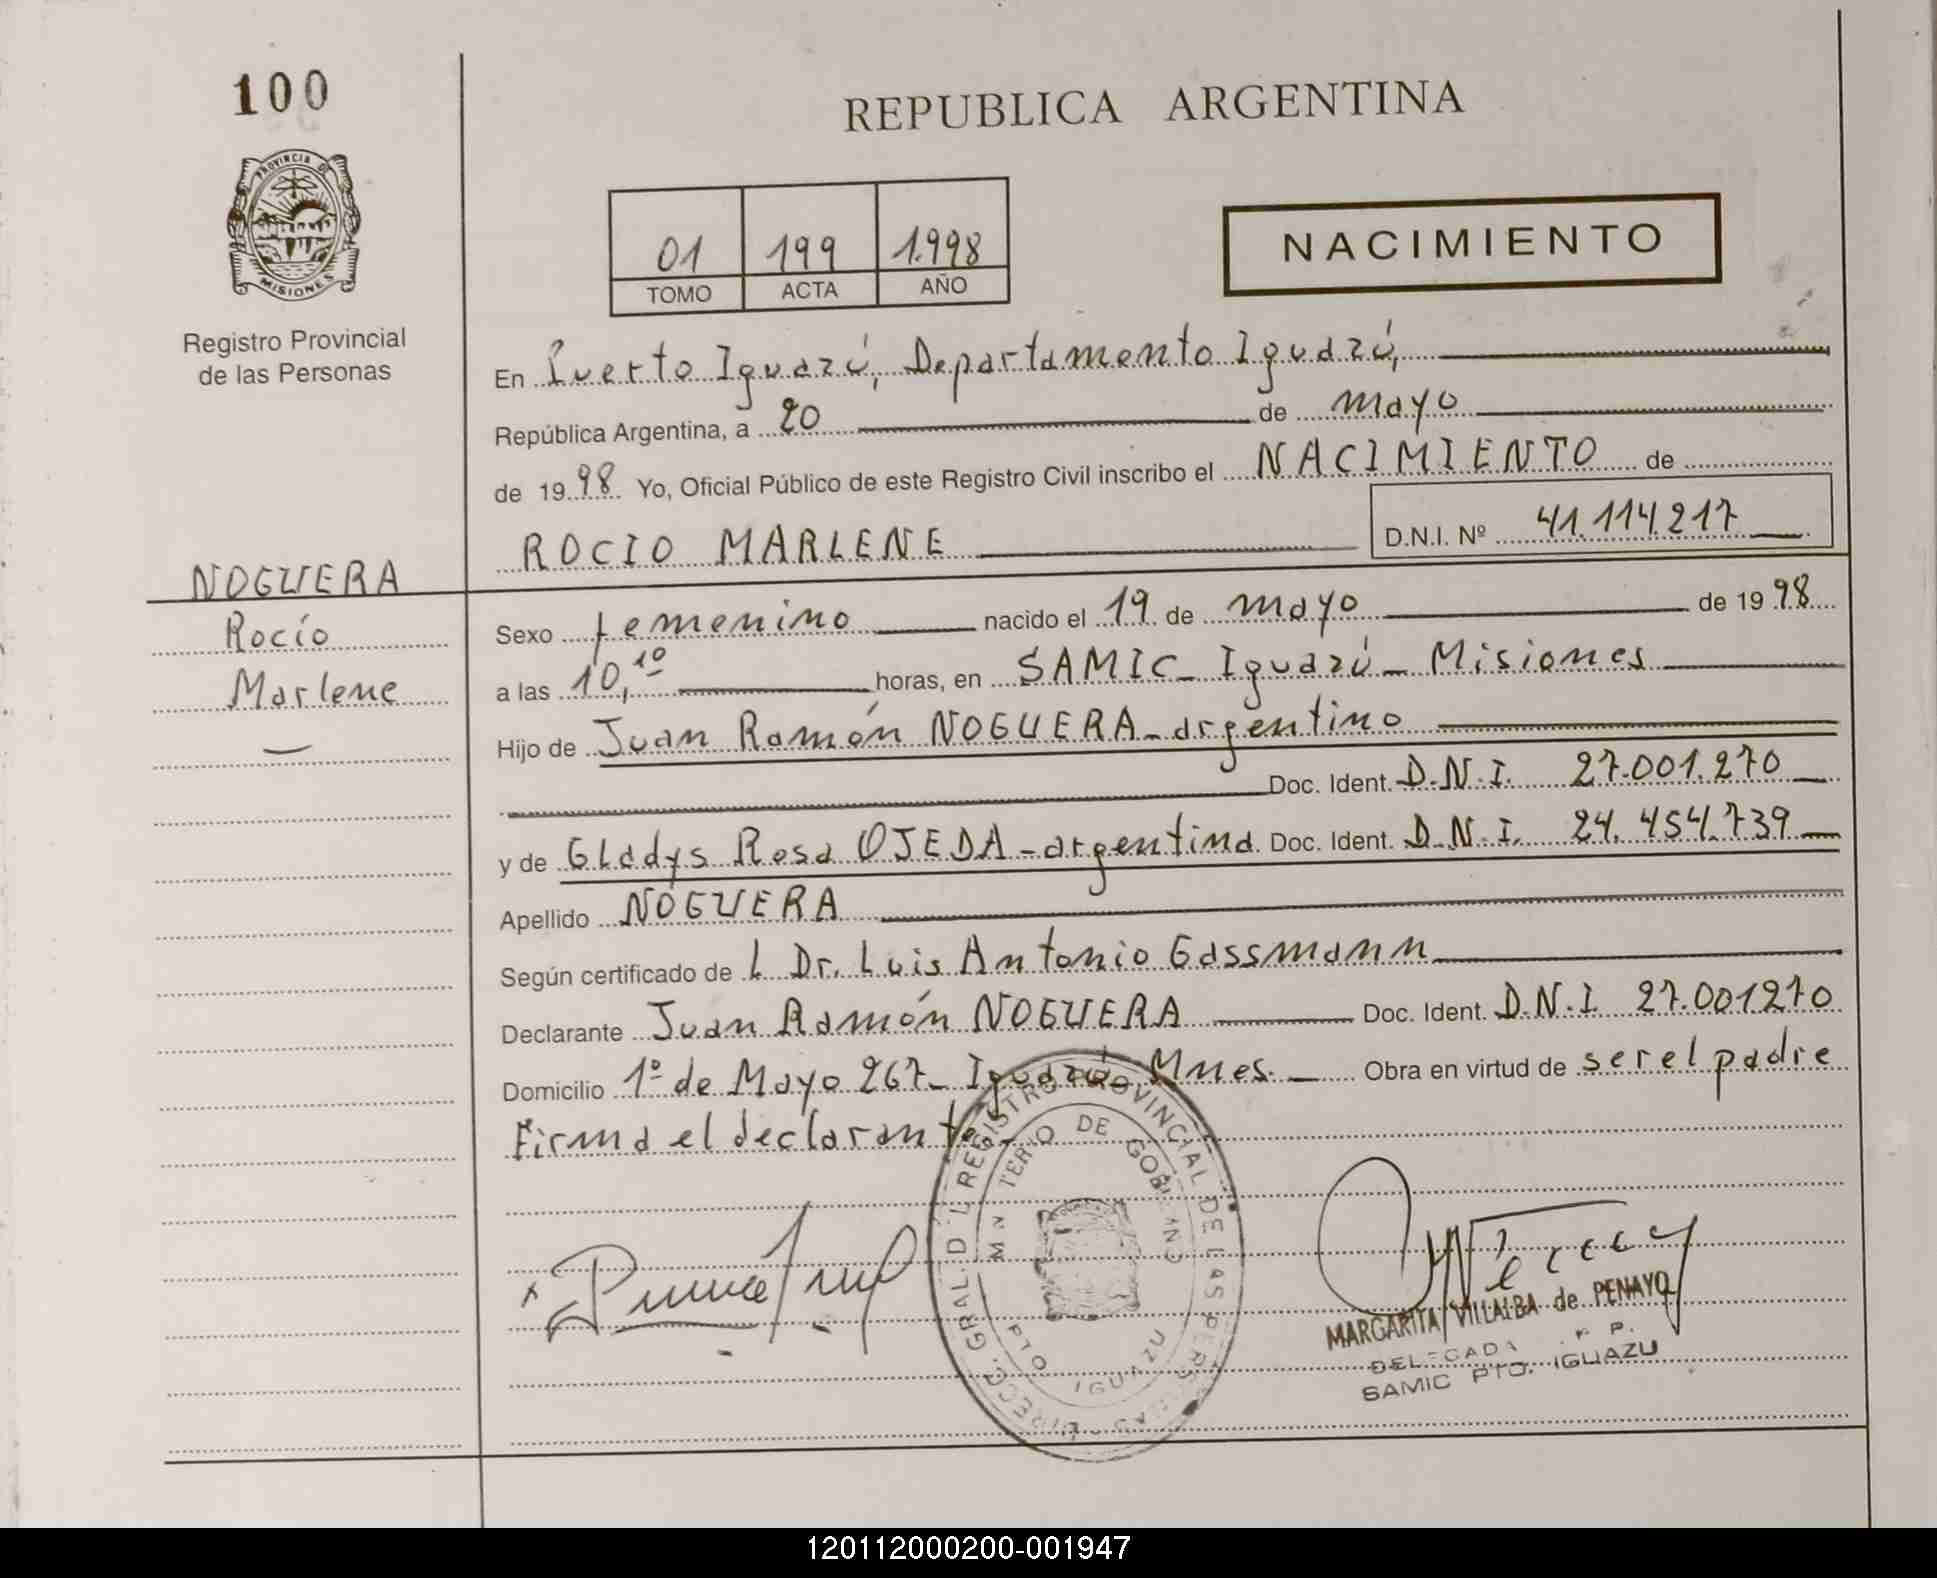 100
REPUBLICA ARGENTINA
PROVINCIA DE
MISIONES
Registro Provincial
de las Personas
01 199 1.998
TOMO ACTA AÑO
NACIMIENTO
En Puerto Iguazú, Departamento Iguazú,
República Argentina, a 20 de mayo
de 1998 Yo, Oficial Público de este Registro Civil inscribo el NACIMIENTO de
ROCIO MARLENE D.N.I. Nº 41.114.217
NOGUERA
Rocío
Marlene
Sexo femenino nacido el 19 de mayo de 1998
a las 10,10 horas, en SAMIC_ Iguazú_ Misiones
Hijo de Juan Ramón NOGUERA_argentino
Doc. Ident. D.N.I. 27.001.270
y de Gladys Rosa OJEDA-argentina. Doc. Ident. D.N.I. 24.454.739
Apellido NOGUERA
Según certificado de L Dr. Luis Antonio Gassmann
Declarante Juan Ramón NOGUERA Doc. Ident. D.N.I 27.001270
Domicilio 1º de Mayo 267_ Iguazú_ Mnes. Obra en virtud de ser el padre
Firma el declarante._
DIRECC. GRAL. D L REGISTRO PROVINCIAL DE LAS PERSONAS
MIN TERIO DE GOBIERNO
IGUAZU
MARGARITA VILLALBA de PENAYO
DELEGADA R. P.
SAMIC PTO. IGUAZU
120112000200-001947